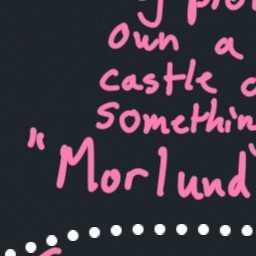 own a
castle o
somethin
"Morlund"